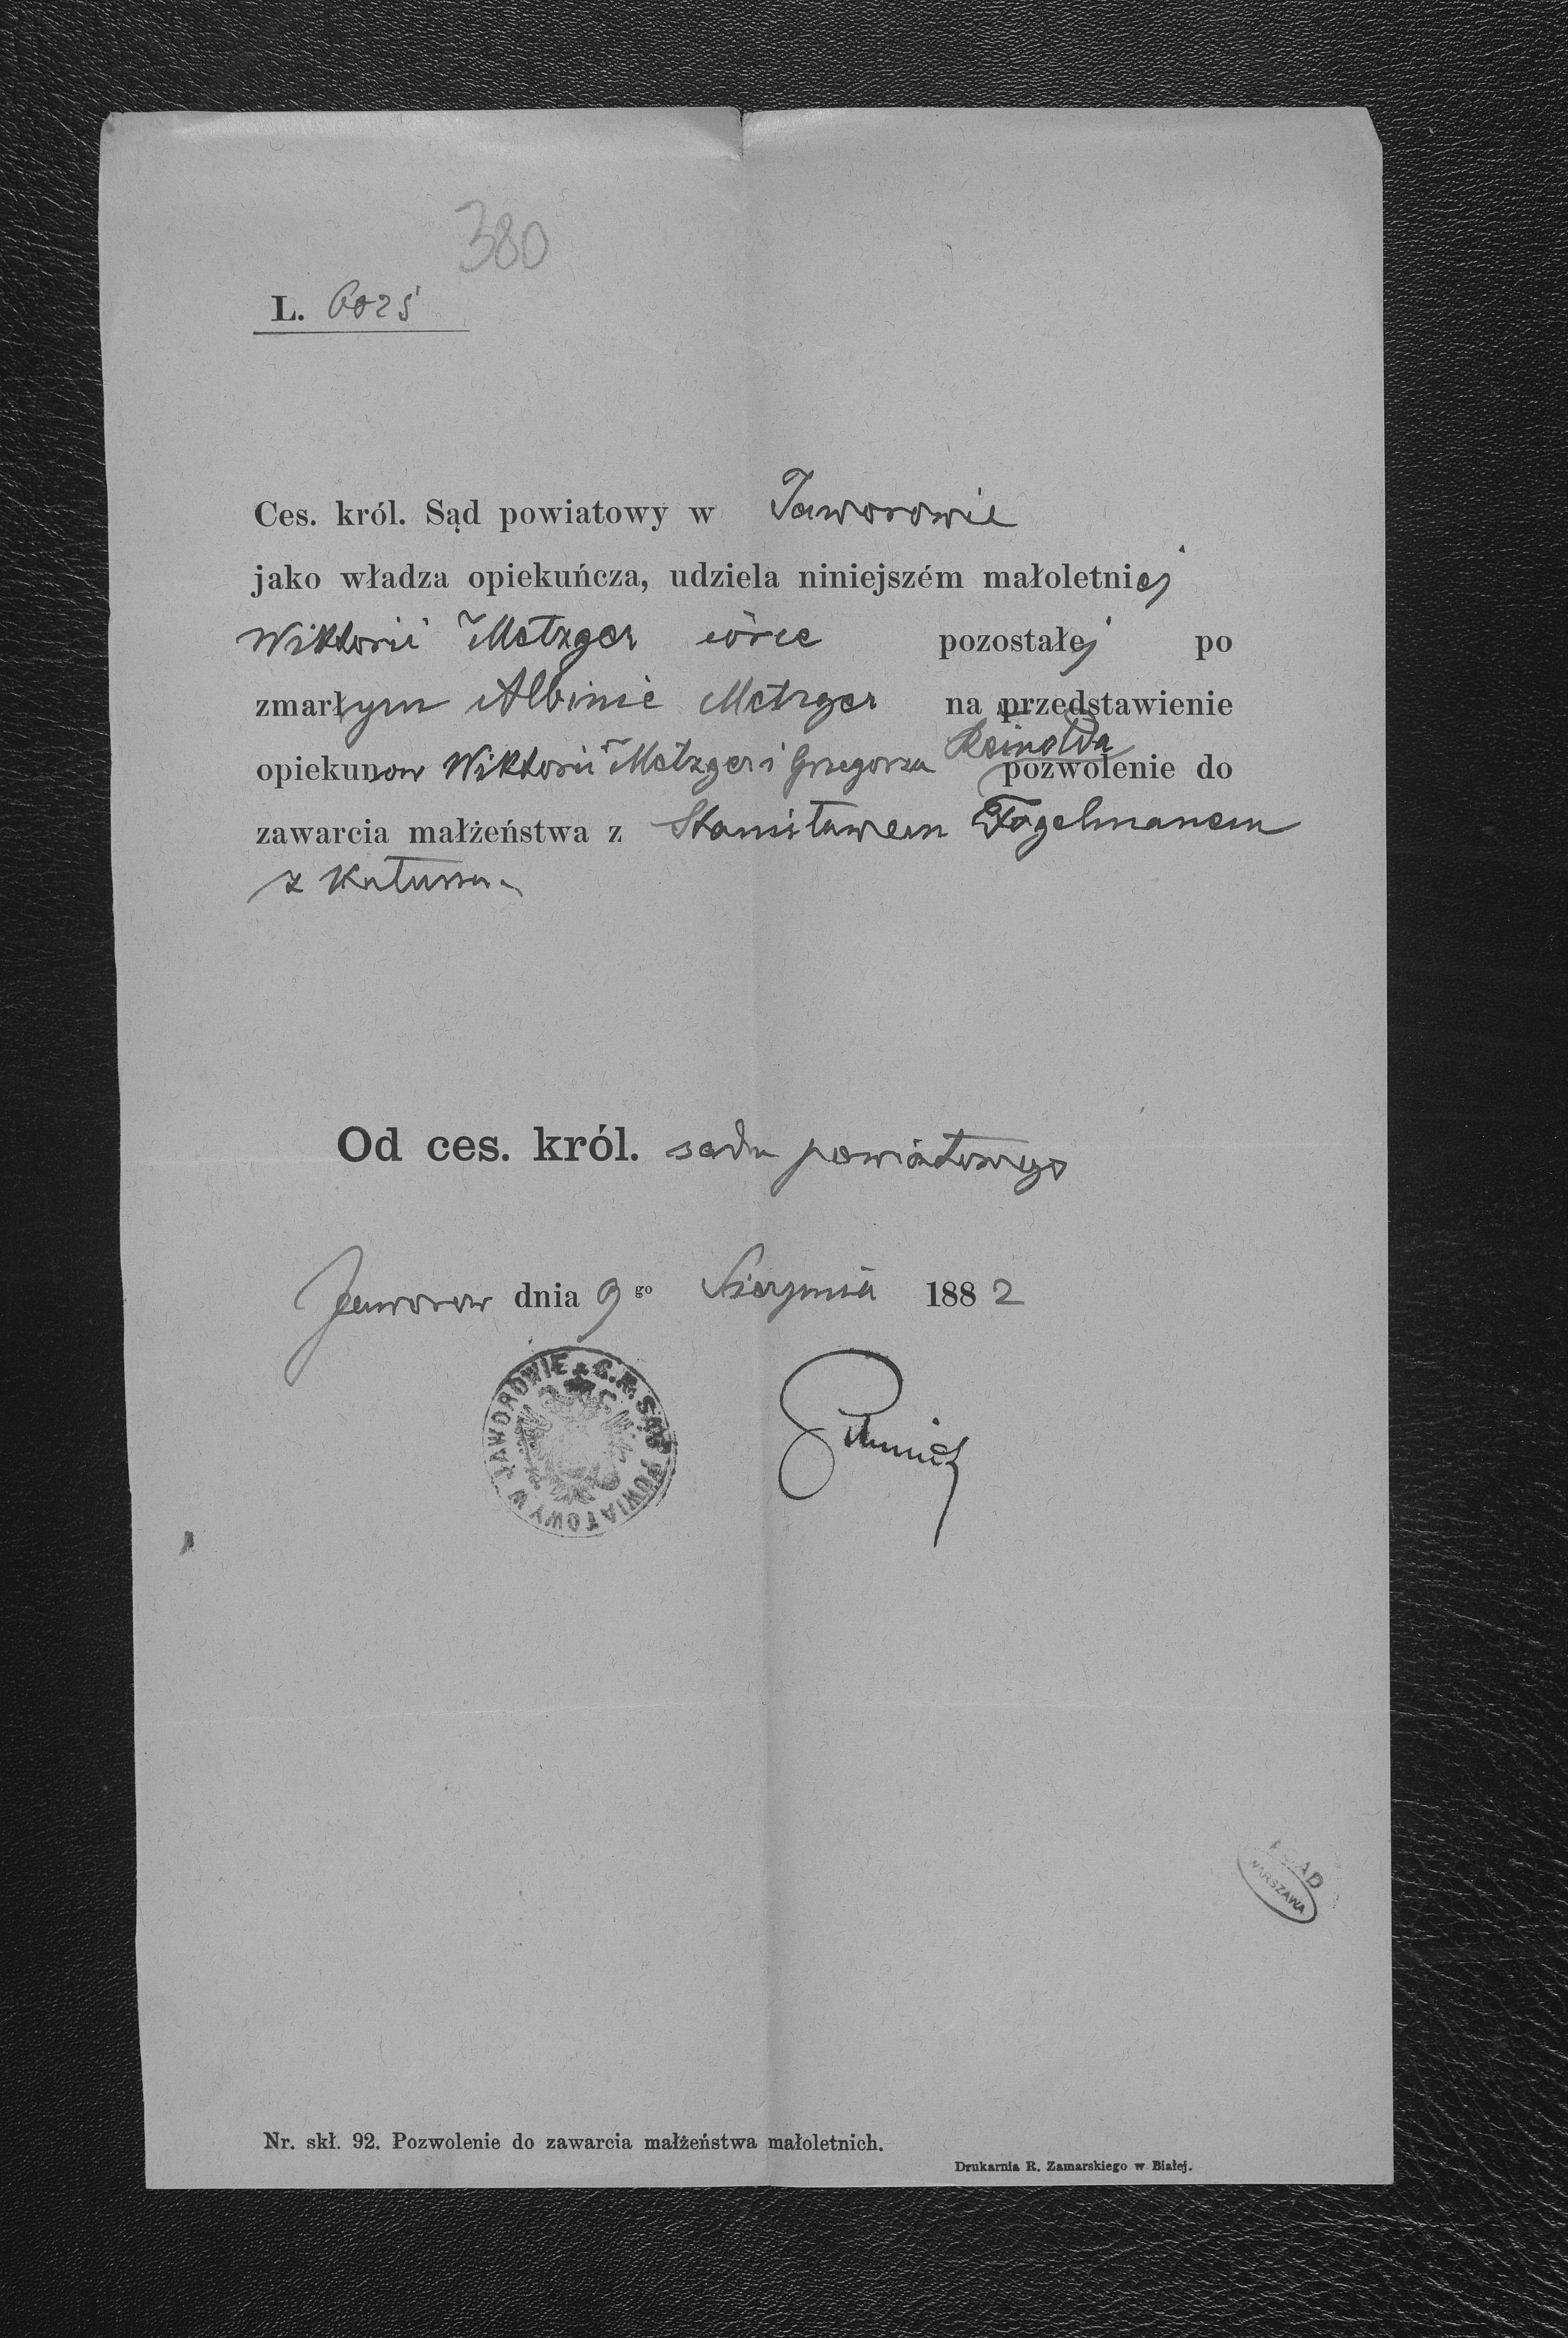 380
L. 6025
Ces. król. Sąd powiatowy w Jaworowie
jako władza opiekuńcza, udziela niniejszém małoletniej
Wiktorii Metzger córce pozostałej po
zmarłym Albinie Metzger na przedstawienie
opiekunow Wiktorii Metzger i Grzegorza Reinolda pozwolenie do
zawarcia małżeństwa z Stanisławem Fogelmanem
z Kałusza
Od ces. król. sadu powiatowego
Jaworow dnia 9 go Sierpnia 1882
C. K. SĄD POWIATOWY W JAWOROWIE
AGAD
WARSZAWA
Nr. skł. 92. Pozwolenie do zawarcia małżeństwa małoletnich.
Drukarnia R. Zamarskiego w Białej.